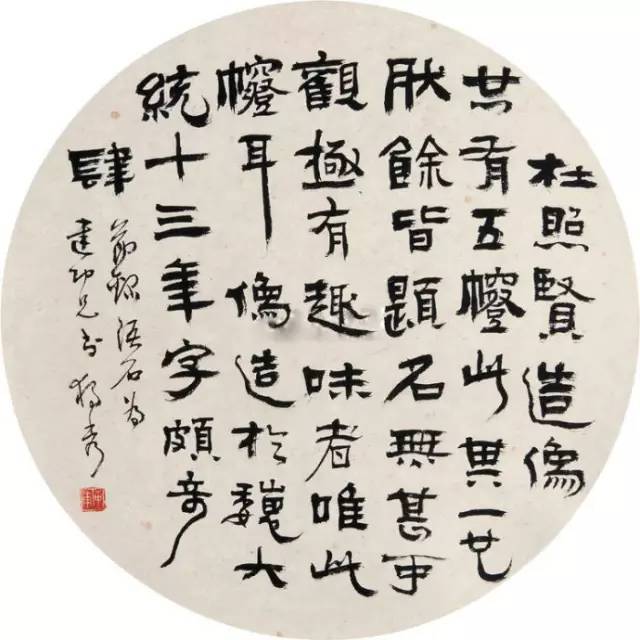 杜照賢造像
共有五此其一也
肰餘皆題名無甚可
觀極有趣味者唯此
耳像造於魏大
統十三年字頗奇
肆
節録語石為
建功兄書 獨秀